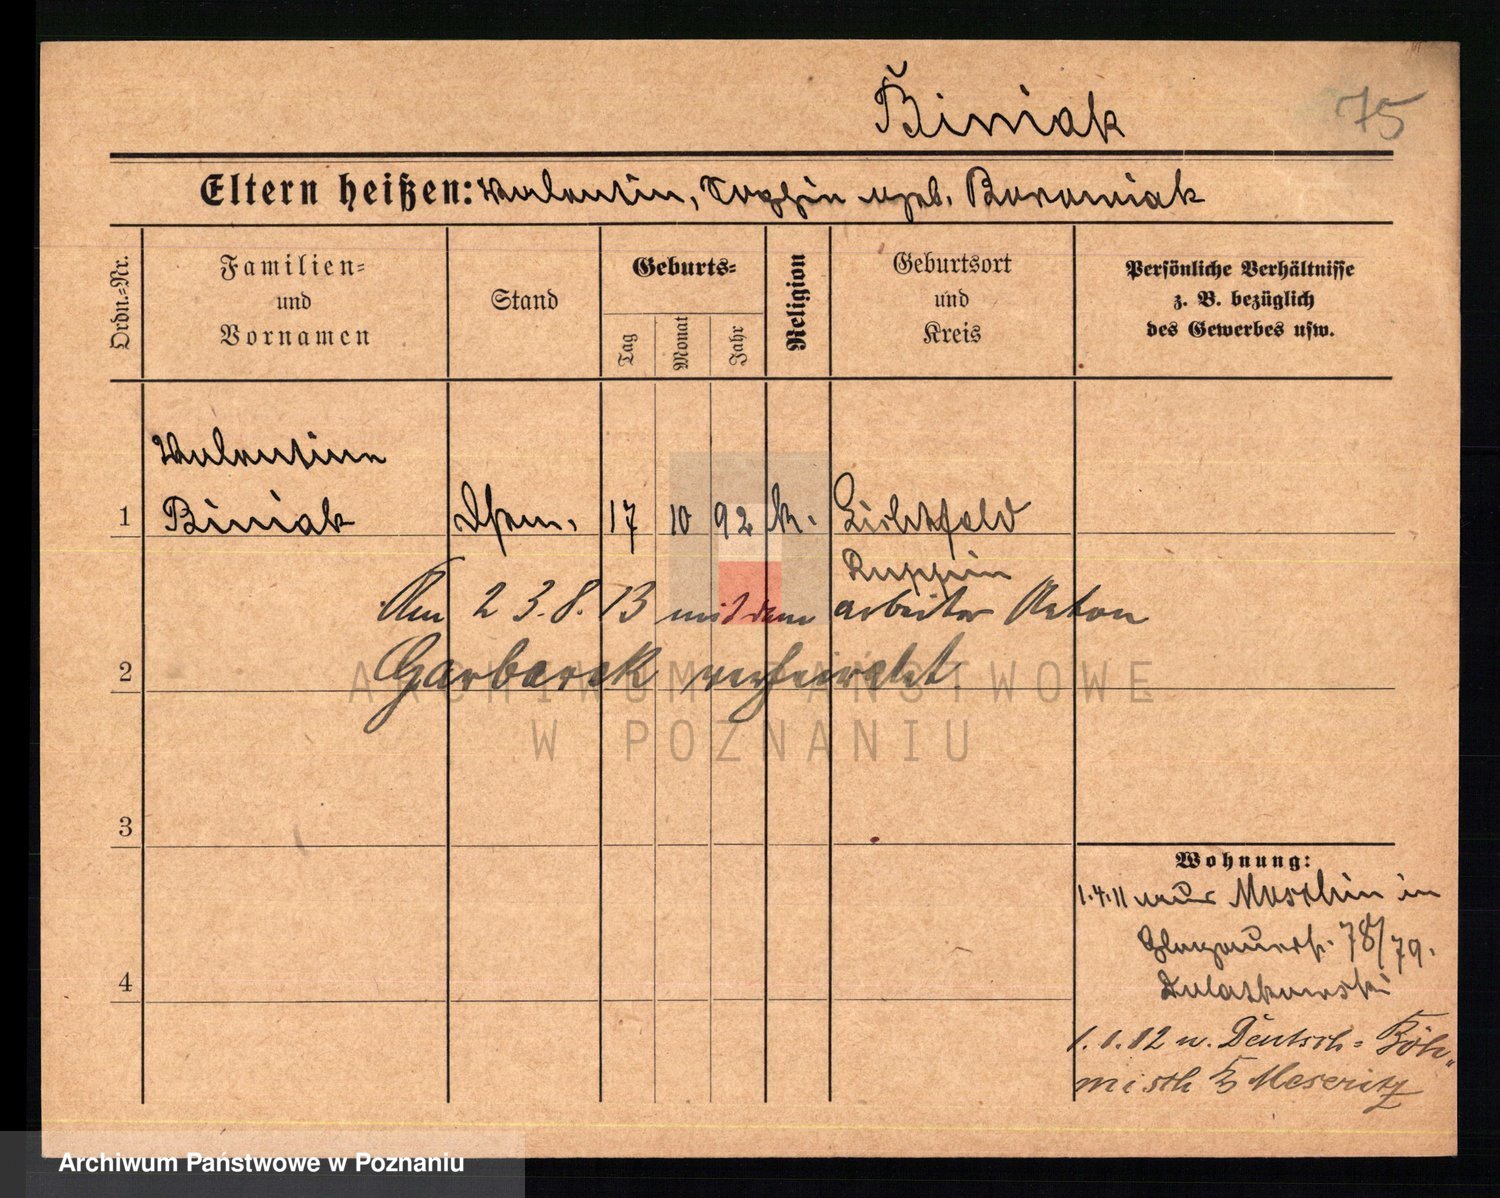 Biniak 75
Eltern heißen: Valentin, Sophia geb. Baraniak
Ordn.-Nr.
Familien-
und
Vornamen
Stand
Geburts-
Tag
Monat
Jahr
Religion
Geburtsort
und
Kreis
Persönliche Verhältnisse
z. B. bezüglich
des Gewerbes usw.
Valentina
1 Biniak 17 10 92 k. Lichtfeld
Ruppin
Am 23.8.13 mit dem arbeiter Anton
2 Garbarek verheiratet.
3
Wohnung:
1.4.11 aus Moschin in
Glogauerstr. 78/79.
4
1.1.12 n. Deutsch-Böh-
misch b Meseritz
ARCHIWUM PAŃSTWOWE
W POZNANIU
Archiwum Państwowe w Poznaniu